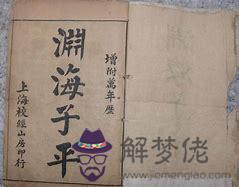 增附萬年歷
淵海子平
上海校經山房印行
解梦佬